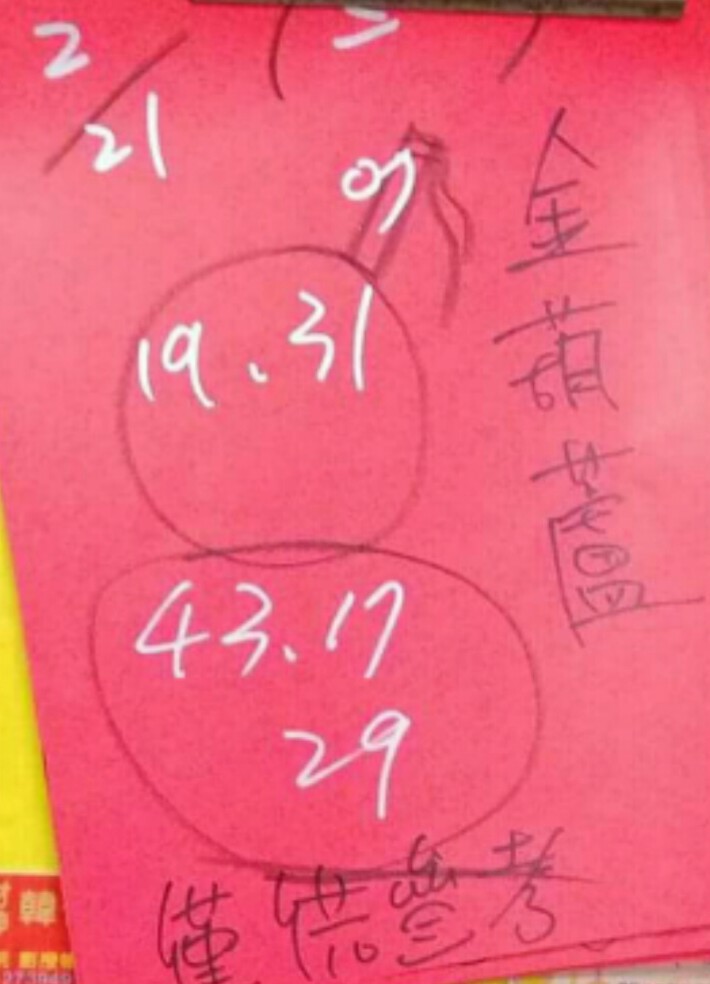 2/21 (二)
07
19.31
43.17
29
金葫蘆
僅供參考
韓